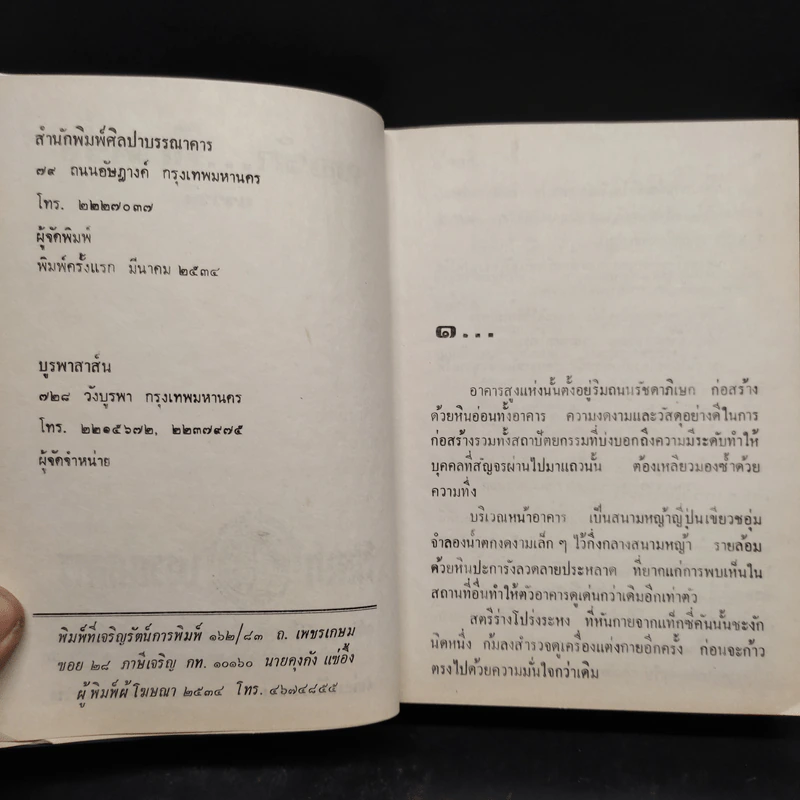 สำนักพิมพ์ศิลปาบรรณาคาร
๗๙ ถนนอัษฎางค์ กรุงเทพมหานคร
โทร. ๒๒๒๗๐๓๗
ผู้จัดพิมพ์
พิมพ์ครั้งแรก มีนาคม ๒๕๓๔
บูรพาสาส์น
๗๒๘ วังบูรพา กรุงเทพมหานคร
โทร. ๒๒๑๕๖๗๒, ๒๒๓๗๙๗๕
ผู้จัดจำหน่าย
พิมพ์ที่เจริญรัตน์การพิมพ์ ๑๖๒/๘๓ ถ. เพชรเกษม
ซอย ๒๘ ภาษีเจริญ กท. ๑๐๑๖๐ นายคุงกัง แซ่อึ้ง
ผู้พิมพ์ผู้โฆษณา ๒๕๓๔ โทร. ๔๖๗๔๘๕๕
๑...
อาคารสูงแห่งนั้นตั้งอยู่ริมถนนรัชดาภิเษก ก่อสร้าง
ด้วยหินอ่อนทั้งอาคาร ความงดงามและวัสดุอย่างดีในการ
ก่อสร้างรวมทั้งสถาปัตยกรรมที่บ่งบอกถึงความมีระดับทำให้
บุคคลที่สัญจรผ่านไปมาแถวนั้น ต้องเหลียวมองซ้ำด้วย
ความทึ่ง
บริเวณหน้าอาคาร เป็นสนามหญ้าญี่ปุ่นเขียวชอุ่ม
จำลองน้ำตกงดงามเล็ก ๆ ไว้กึ่งกลางสนามหญ้า รายล้อม
ด้วยหินปะการังลวดลายประหลาด ที่ยากแก่การพบเห็นใน
สถานที่อื่นทำให้ตัวอาคารดูเด่นกว่าเดิมอีกเท่าตัว
สตรีร่างโปร่งระหง ที่หันกายจากแท็กซี่คันนั้นชะงัก
นิดหนึ่ง ก้มลงสำรวจดูเครื่องแต่งกายอีกครั้ง ก่อนจะก้าว
ตรงไปด้วยความมั่นใจกว่าเดิม